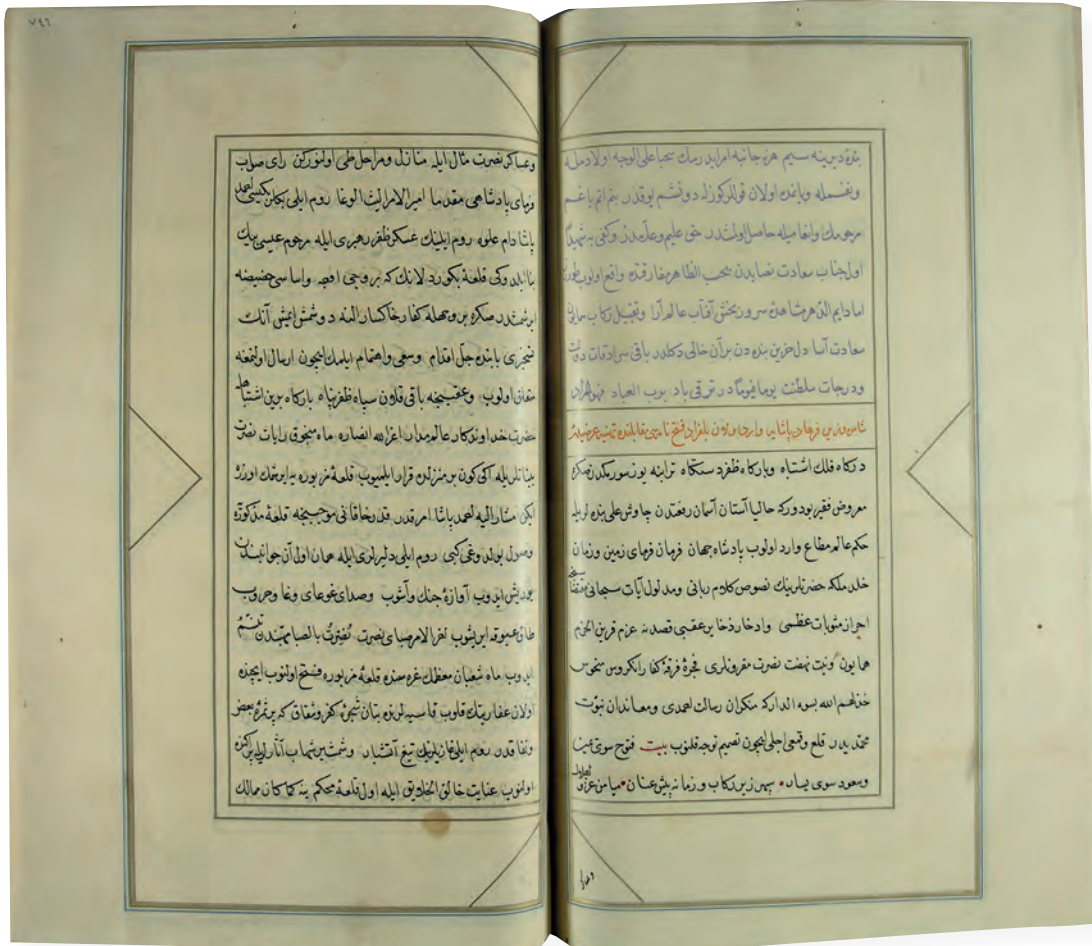 بنده دیرینه سیم هر نه جانبه امر ایدرسك سمعا علی الوجه اولادمله
ونفسمله ویانمده اولان قوللر کوزله دونشم یوقدر بنم اتم یاغم
مرحومك وانعامیله حاصل اولمشدر حق علیم وعلامدر وکفی به شهیدا
اول جناب سعادت نصابدن بحسب الظاهر مفارقته واقع اولوب
اما دایم الدهر مشاهده سرور بخش آفتاب عالم آرا وتقبیل رکاب
سعادت آسا دل حزین بنده دن بر آن خالی دکلدر باقی سرادقات دولت
ودرجات سلطنت یوما فیوما در ترقی باد برب العباد
فرهاد پاشایه وارد اولان بلغراد فتح نامه سی مقابلنده تهنیه
درکاه فلك اشتباه وبارکاه ظفر دستکاه ترابنه یوز سورمکدن صکره
معروض فقیر بودورکه حالیا آستان آسمان رفعتدن چاوش علی بنده لریله
حکم عالم مطاع وارد اولوب پادشاه جهان فرمان فرمای زمین وزمان
خلد ملکه حضرتلرینك نصوص کلام ربانی ومدلول آیات سبحانی مقتضاسنجه
احراز مثوبات عظمی وادخار ذخایر عقبی قصدنه عزم قرین الحزم
همایون ونیت نهضت نصرت مقرونلری فجره فرقه کفار انکروس منحوس
خذلهم الله بسوء الدار که منکران رسالت احمدی ومعاندان نبوت
محمدیدر قلع وقمعی اجلی ایچون تصمیم توجه قلنوب بیت فتوح سوی یمین
وسعود سوی یسار • سپهر زیر رکاب وزمانه پیش عنان • میامن عز
٧٩٦
وعساکر نصرت مثال ایله منازل ومراحل طی اولنورکن رای صواب
نمای پادشاهی مقدما امیر الامرا لیث الوغا روم ایلی بکلربکیسی احمد
پاشا دام علوه روم ایلینك عسکر ظفر رهبری ایله مرحوم عیسی بیك
بنا ایلدوکی قلعهٔ بکوردلانك که بروجی اوجه واساسی حضیضه
ایرشمشدر صکره بروجهله کفار خاکسار النه دوشمش ایمش آنك
تسخیری بابنده جل اقدام وسعی واهتمام ایلمك ایچون ارسال اولنمغه
متعلق اولوب وعقبینجه باقی قلان سپاه ظفرپناه بارکاه برین اشتباه ایله
حضرت خداوندکار عالم مدار اعز الله انصاره ماه منجوق رایات نصرت
بیناتلریله ایکی کون بر منزلده قرار ایلمیوب قلعهٔ مزبوره یه ایرشمك اوزره
ایکن مشار الیه احمد پاشا امر قدر قدر خاقانی موجبنجه قلعهٔ مذکوره یه
وصول بولدوغی کبی روم ایلی دلیرلری ایله همان اول آن جوانبندن
یوریش ایدوب آوازهٔ جنك وآشوب وصدای غوغای وغا وحروب
طاق عیوقه ایریشوب آخر الامر صبای نصرت نصرت بالصبا مهبندن تبسم
ایدوب ماه شعبان معظمك غره سنده قلعهٔ مزبوره فتح اولنوب ایچنده
اولان عفاریتك قلوب قاسیه لرنده بتان شجرهٔ کفر ونفاق که پر ثمرهٔ بغض
ونفاقدر روم ایلی غازیلرینك تیغ آتشبار وشمشیر شهاب آثارلریله برکنده
اولنوب عنایت خالق الخلایق ایله اول قلعهٔ محکم ینه کما کان ممالك